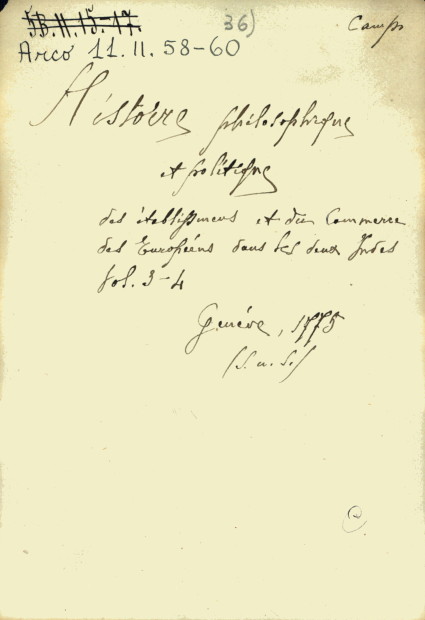 5B.II.15-17.
36)
Camp
Arco 11.II.58-60
Histoire philosophique
et politique
des établissmens et du Commerce
des Européens dans les deux Indes
Vol. 3-4
Genéve, 1775
(S. n. S.)
C